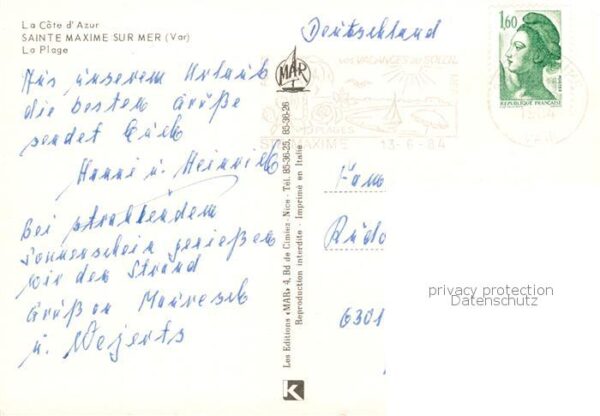 La Côte d'Azur
SAINTE MAXIME SUR MER (Var)
La Plage
Deutschland
Aus unserem Urlaub
die besten Grüße
sendet Euch
Hanni u. Heinrich
Bei strahlendem
Sonnenschein genießen
wir den Strand
Gruß an
u.
MAR
Les Editions «MAR» 4, Bd de Cimiez, Nice - Tél. 85-36-25, 85-36-26
Reproduction interdite - Imprimé en Italie
K
VOS VACANCES AU SOLEIL
PLAGES
STE MAXIME
13-6-84
1,60
REPUBLIQUE FRANÇAISE
VAR
Fam
6301
privacy protection
Datenschutz